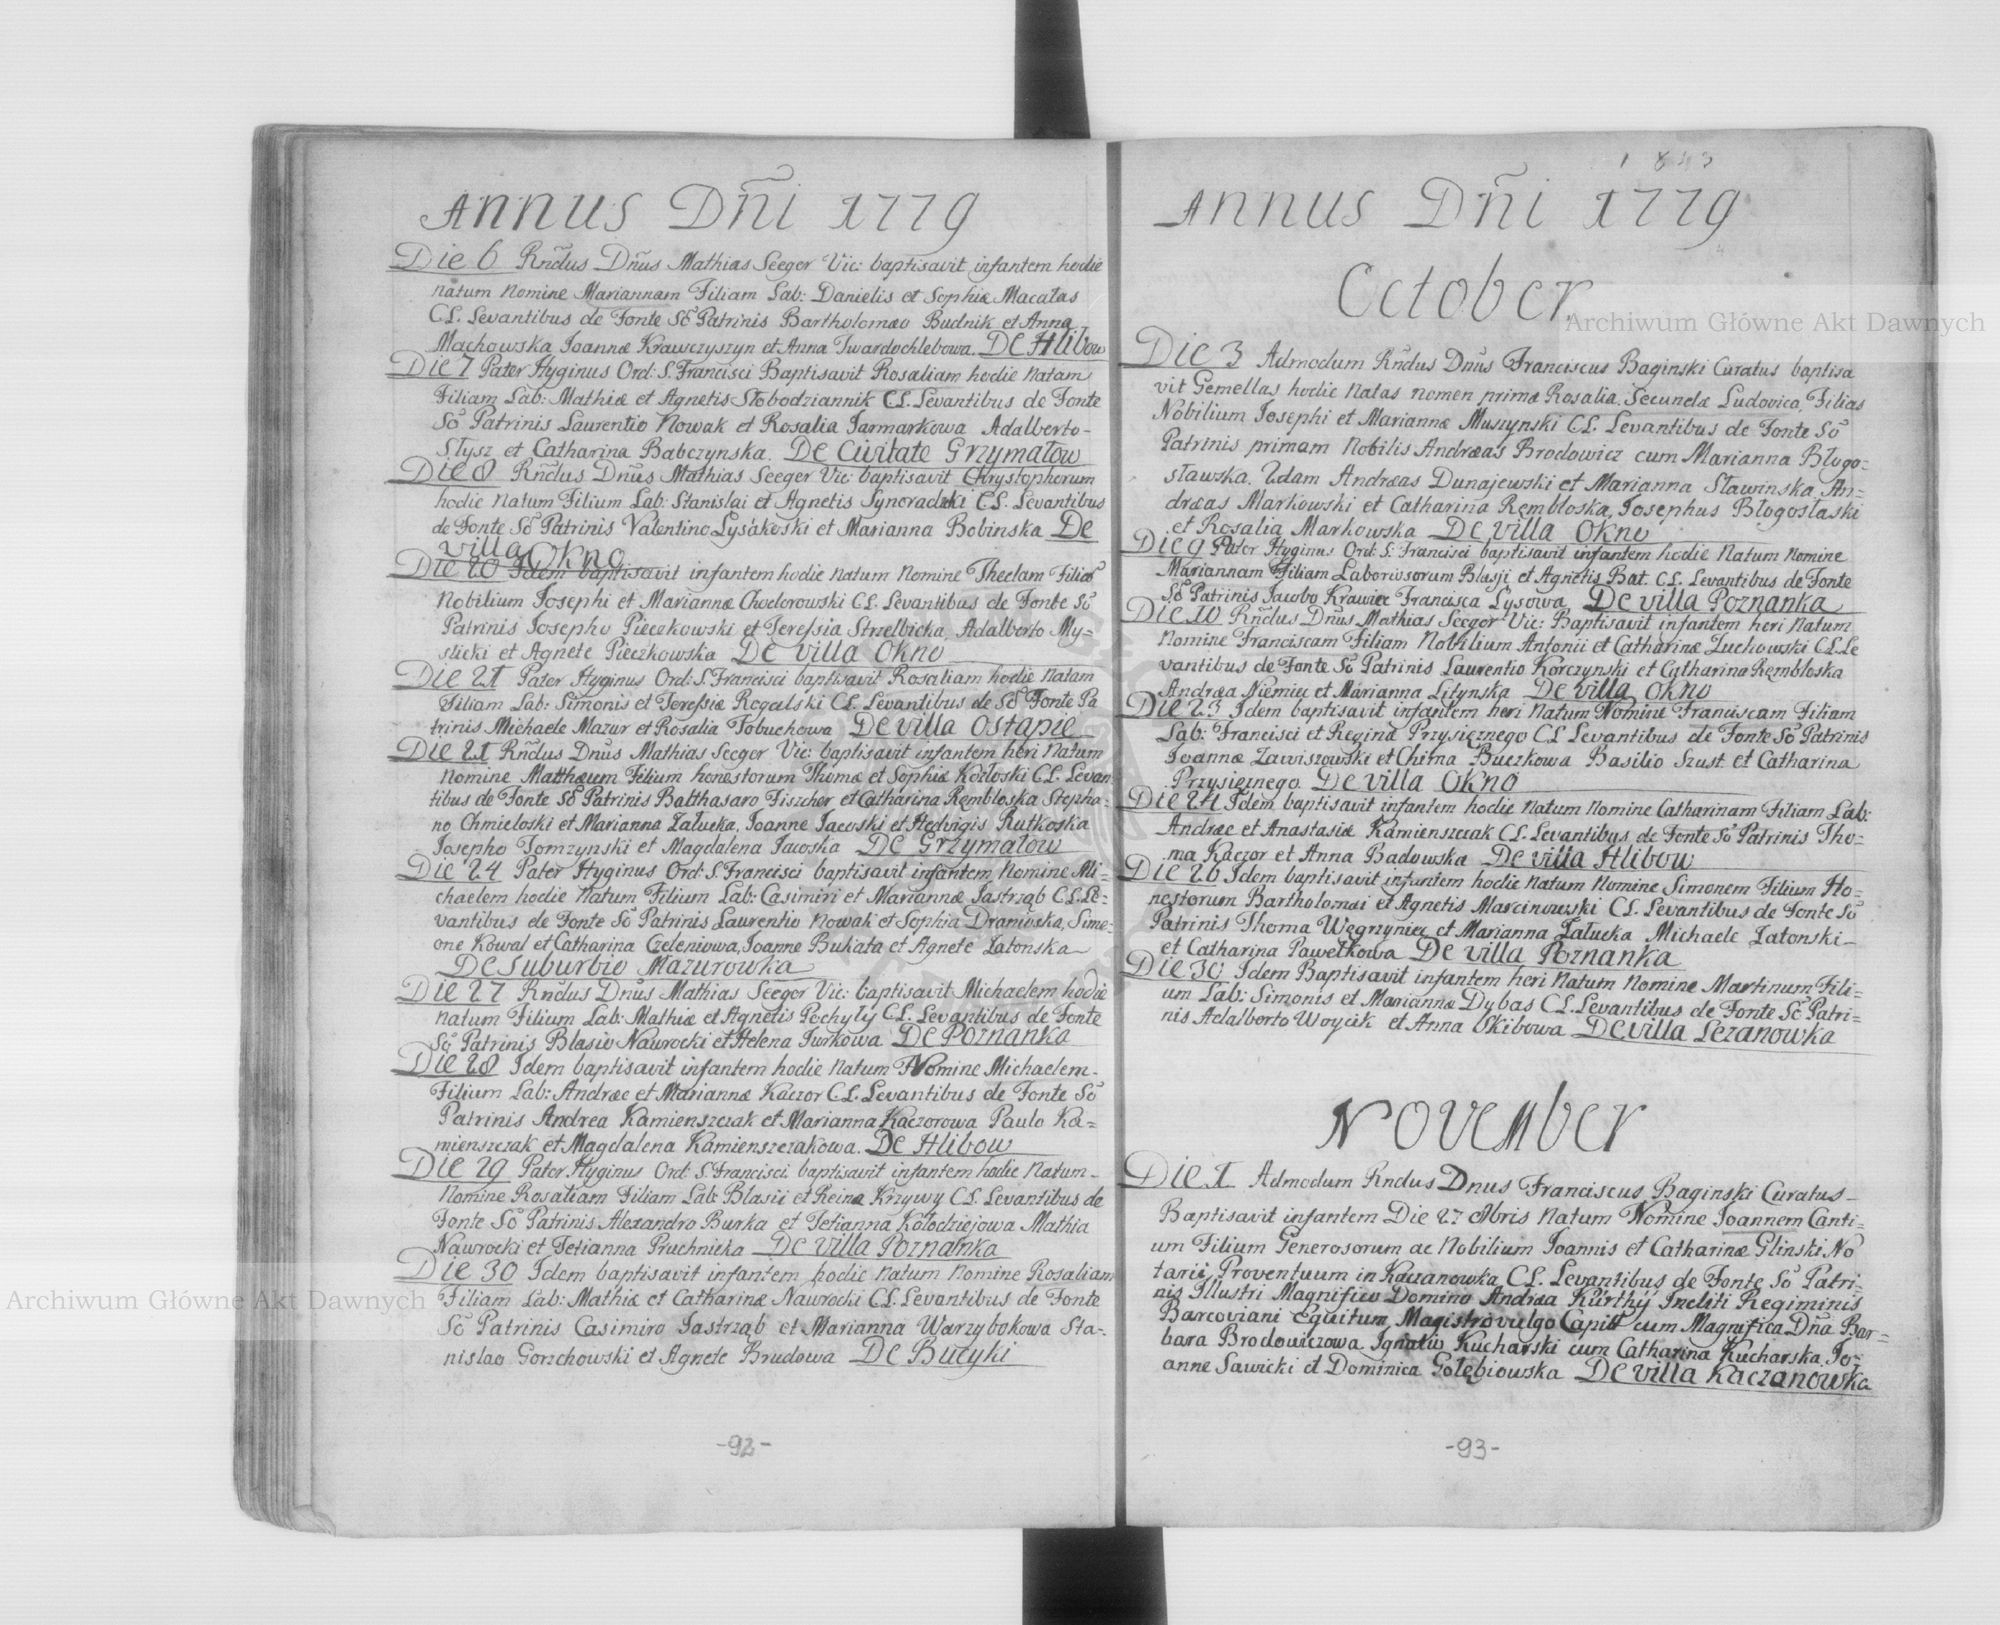 Annus Dñi 1779
Die 6 Rñdus Dñus Mathias Seeger Vic: baptisavit infantem hodie
natum nomine Mariannam Filiam Lab: Danielis et Sophiæ Macatas
CL. Levantibus de Fonte Sõ Patrinis Bartholomæo Budnik et Anna
Machowska Joannæ Krawczyszyn et Anna Twardochlebowa. De Hlibow
Die 7 Pater Hyginus Ord: S. Francisci Baptisavit Rosaliam hodie natam
Filiam Lab: Mathiæ et Agnetis Słobodziannik CL. Levantibus de Fonte
Sõ Patrinis Laurentio Nowak et Rosalia Jarmarkowa Adalberto-
Słysz et Catharina Babczynska. De Civitate Grzymałow
Die 8 Rñdus Dñus Mathias Seeger Vic: baptisavit Chrystophorum
hodie natum Filium Lab: Stanislai et Agnetis CL. Levantibus
de Fonte Sõ Patrinis Valentino Lysakoski et Marianna Bobinska De
villa Okno
Die 20 Idem baptisavit infantem hodie natum nomine Theclam Filiã
Nobilium Josephi et Mariannæ Chodorowski CL. Levantibus de Fonte Sõ
Patrinis Josepho Pieczkowski et Teressia Strzelbicka, Adalberto My=
slicki et Agnete Pieczkowska De villa Okno
Die 21 Pater Hyginus Ord: S. Francisci baptisavit Rosaliam hodie natam
Filiam Lab: Simonis et Teressiæ Rogalski CL. Levantibus de Sõ Fonte Pa
trinis Michaele Mazur et Rosalia Tobuchowa De villa Ostapie
Die 21 Rñdus Dñus Mathias Seeger Vic: baptisavit infantem heri natum
nomine Matthæum Filium honestorum Thomæ et Sophiæ Kozłoski CL. Levan
tibus de Fonte Sõ Patrinis Balthasaro Fiszcher et Catharina Rembłoska Stepha=
no Chmieloski et Marianna Załucka, Joanne Jacoski et Hedvigis Rutkoska
Josepho Tomzynski et Magdalena Jacoska De Grzymałow
Die 24 Pater Hyginus Ord: S. Francisci baptisavit infantem nomine Mi=
chaelem hodie natum Filium Lab: Casimiri et Mariannæ Jastrząb CL. Le=
vantibus de Fonte Sõ Patrinis Laurentio Nowak et Sophia Dranicka, Sime=
one Kowal et Catharina Czeleniowa, Joanne Bukata et Agnete Zatonska
De Suburbio Mazurowka
Die 27 Rñdus Dñus Mathias Seeger Vic: baptisavit Michaelem hodie
natum Filium Lab: Mathiæ et Agnetis Pochyły CL. Levantibus de Fonte
Sõ Patrinis Blasio Nawrocki et Helena Turkowa De Poznanka
Die 28 Idem baptisavit infantem hodie natum Nomine Michaelem-
Filium Lab: Andræe et Mariannæ Kaczor CL. Levantibus de Fonte Sõ
Patrinis Andrea Kamienszczak et Marianna Kaczorowa Paulo Ka=
mienszczak et Magdalena Kamienszczakowa. De Hlibow
Die 29 Pater Hyginus Ord: S. Francisci baptisavit infantem hodie natum-
Nomine Rosaliam Filiam Lab: Blasii et Reinæ Krzywy CL. Levantibus de
Fonte Sõ Patrinis Alexandro Burka et Tetianna Kołodziejowa Mathia
Nawrocki et Tetianna Pruchnicka De villa Poznanka
Die 30 Idem baptisavit infantem hodie natum nomine Rosaliam
Filiam Lab: Mathiæ et Catharinæ Nawrocki CL. Levantibus de Fonte
Sõ Patrinis Casimiro Jastrząb et Marianna Warzybokowa Sta-
nislao Gorzchowski et Agnete Brudowa De Bucyki
-92-
Annus Dñi 1779
October
Die 3 Admodum Rñdus Dñus Franciscus Baginski Curatus baptisa
vit Gemellas hodie natas nomen primæ Rosalia. Secundæ Ludovica, Filias
Nobilium Josephi et Mariannæ Muszynski CL. Levantibus de Fonte Sõ
Patrinis primam Nobilis Andræas Brodowicz cum Marianna Błogo=
sławska. 2dam Andræas Dunajewski et Marianna Sławinska An=
dræas Markowski et Catharina Rembłoska, Josephus Błogosłaski
et Rosalia Markowska De villa Okno
Die 9 Pater Hyginus Ord: S: Francisci baptisavit infantem hodie natum nomine
Mariannam Filiam Laboriosorum Blasji et Agnetis Bat. CL. Levantibus de Fonte
Sõ Patrinis Jacobo Krawiec Francisca Lysowa De villa Poznanka
Die 10 Rñdus Dñus Mathias Seeger Vic: Baptisavit infantem heri natum
nomine Franciscam Filiam Nobilium Antonii et Catharinæ Zuchowski CL. Le
vantibus de Fonte Sõ Patrinis Laurentio Korczynski et Catharina Rembłoska
Andræa Niemiec et Marianna Litynska De villa Okno
Die 23 Idem baptisavit infantem heri natum Nomine Franciscam Filiam
Lab: Francisci et Reginæ Przysięznego CL Levantibus de Fonte Sõ Patrinis
Joannæ Zawiszowski et Chima Buczkowa Basilio Szust et Catharina
Przysięznego De villa Okno
Die 24 Idem baptisavit infantem hodie natum nomine Catharinam Filiam Lab:
Andræe et Anastasiæ Kamienszczak CL. Levantibus de Fonte Sõ Patrinis Tho=
ma Kaczor et Anna Badowska De villa Hlibow
Die 26 Idem baptisavit infantem hodie natum nomine Simonem Filium Ho=
nestorum Bartholomæi et Agnetis Marcinowski CL. Levantibus de Fonte Sõ
Patrinis Thoma Węgrzyniec et Marianna Załucka Michaele Zatonski-
et Catharina Pawełkowa De villa Poznanka
Die 30 Idem Baptisavit infantem heri natum nomine Martinum Fili=
um Lab: Simonis et Mariannæ Dybas CL. Levantibus de Fonte Sõ Patri=
nis Adalberto Woycik et Anna Skibowa De villa Lezanowka
November
Die 1 Admodum Rndus Dnus Franciscus Baginski Curatus-
Baptisavit infantem Die 27 8bris natum Nomine Joannem Canti=
um Filium Generosorum ac Nobilium Joannis et Catharinæ Glinski No
tarii Proventuum in Kaczanowka CL. Levantibus de Fonte Sõ Patri-
nis Illustri Magnifico Domino Andræa Kürthÿ Incliti Regiminis
Barcoviani Equitum Magistro vulgo Capitt cum Magnifica Dña Bar=
bara Brodowiczowa, Ignatio Kucharski cum Catharina Kucharska. Jo-
anne Sawicki et Dominica Gołębiowska De villa Kaczanowka
-93-
Archiwum Główne Akt Dawnych
Archiwum Główne Akt Dawnych